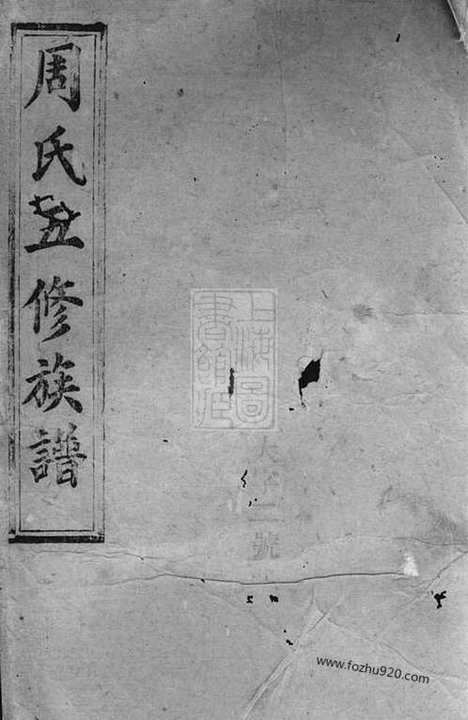 周氏五修族譜
上海圖書館藏
二號
www.fozhu920.com